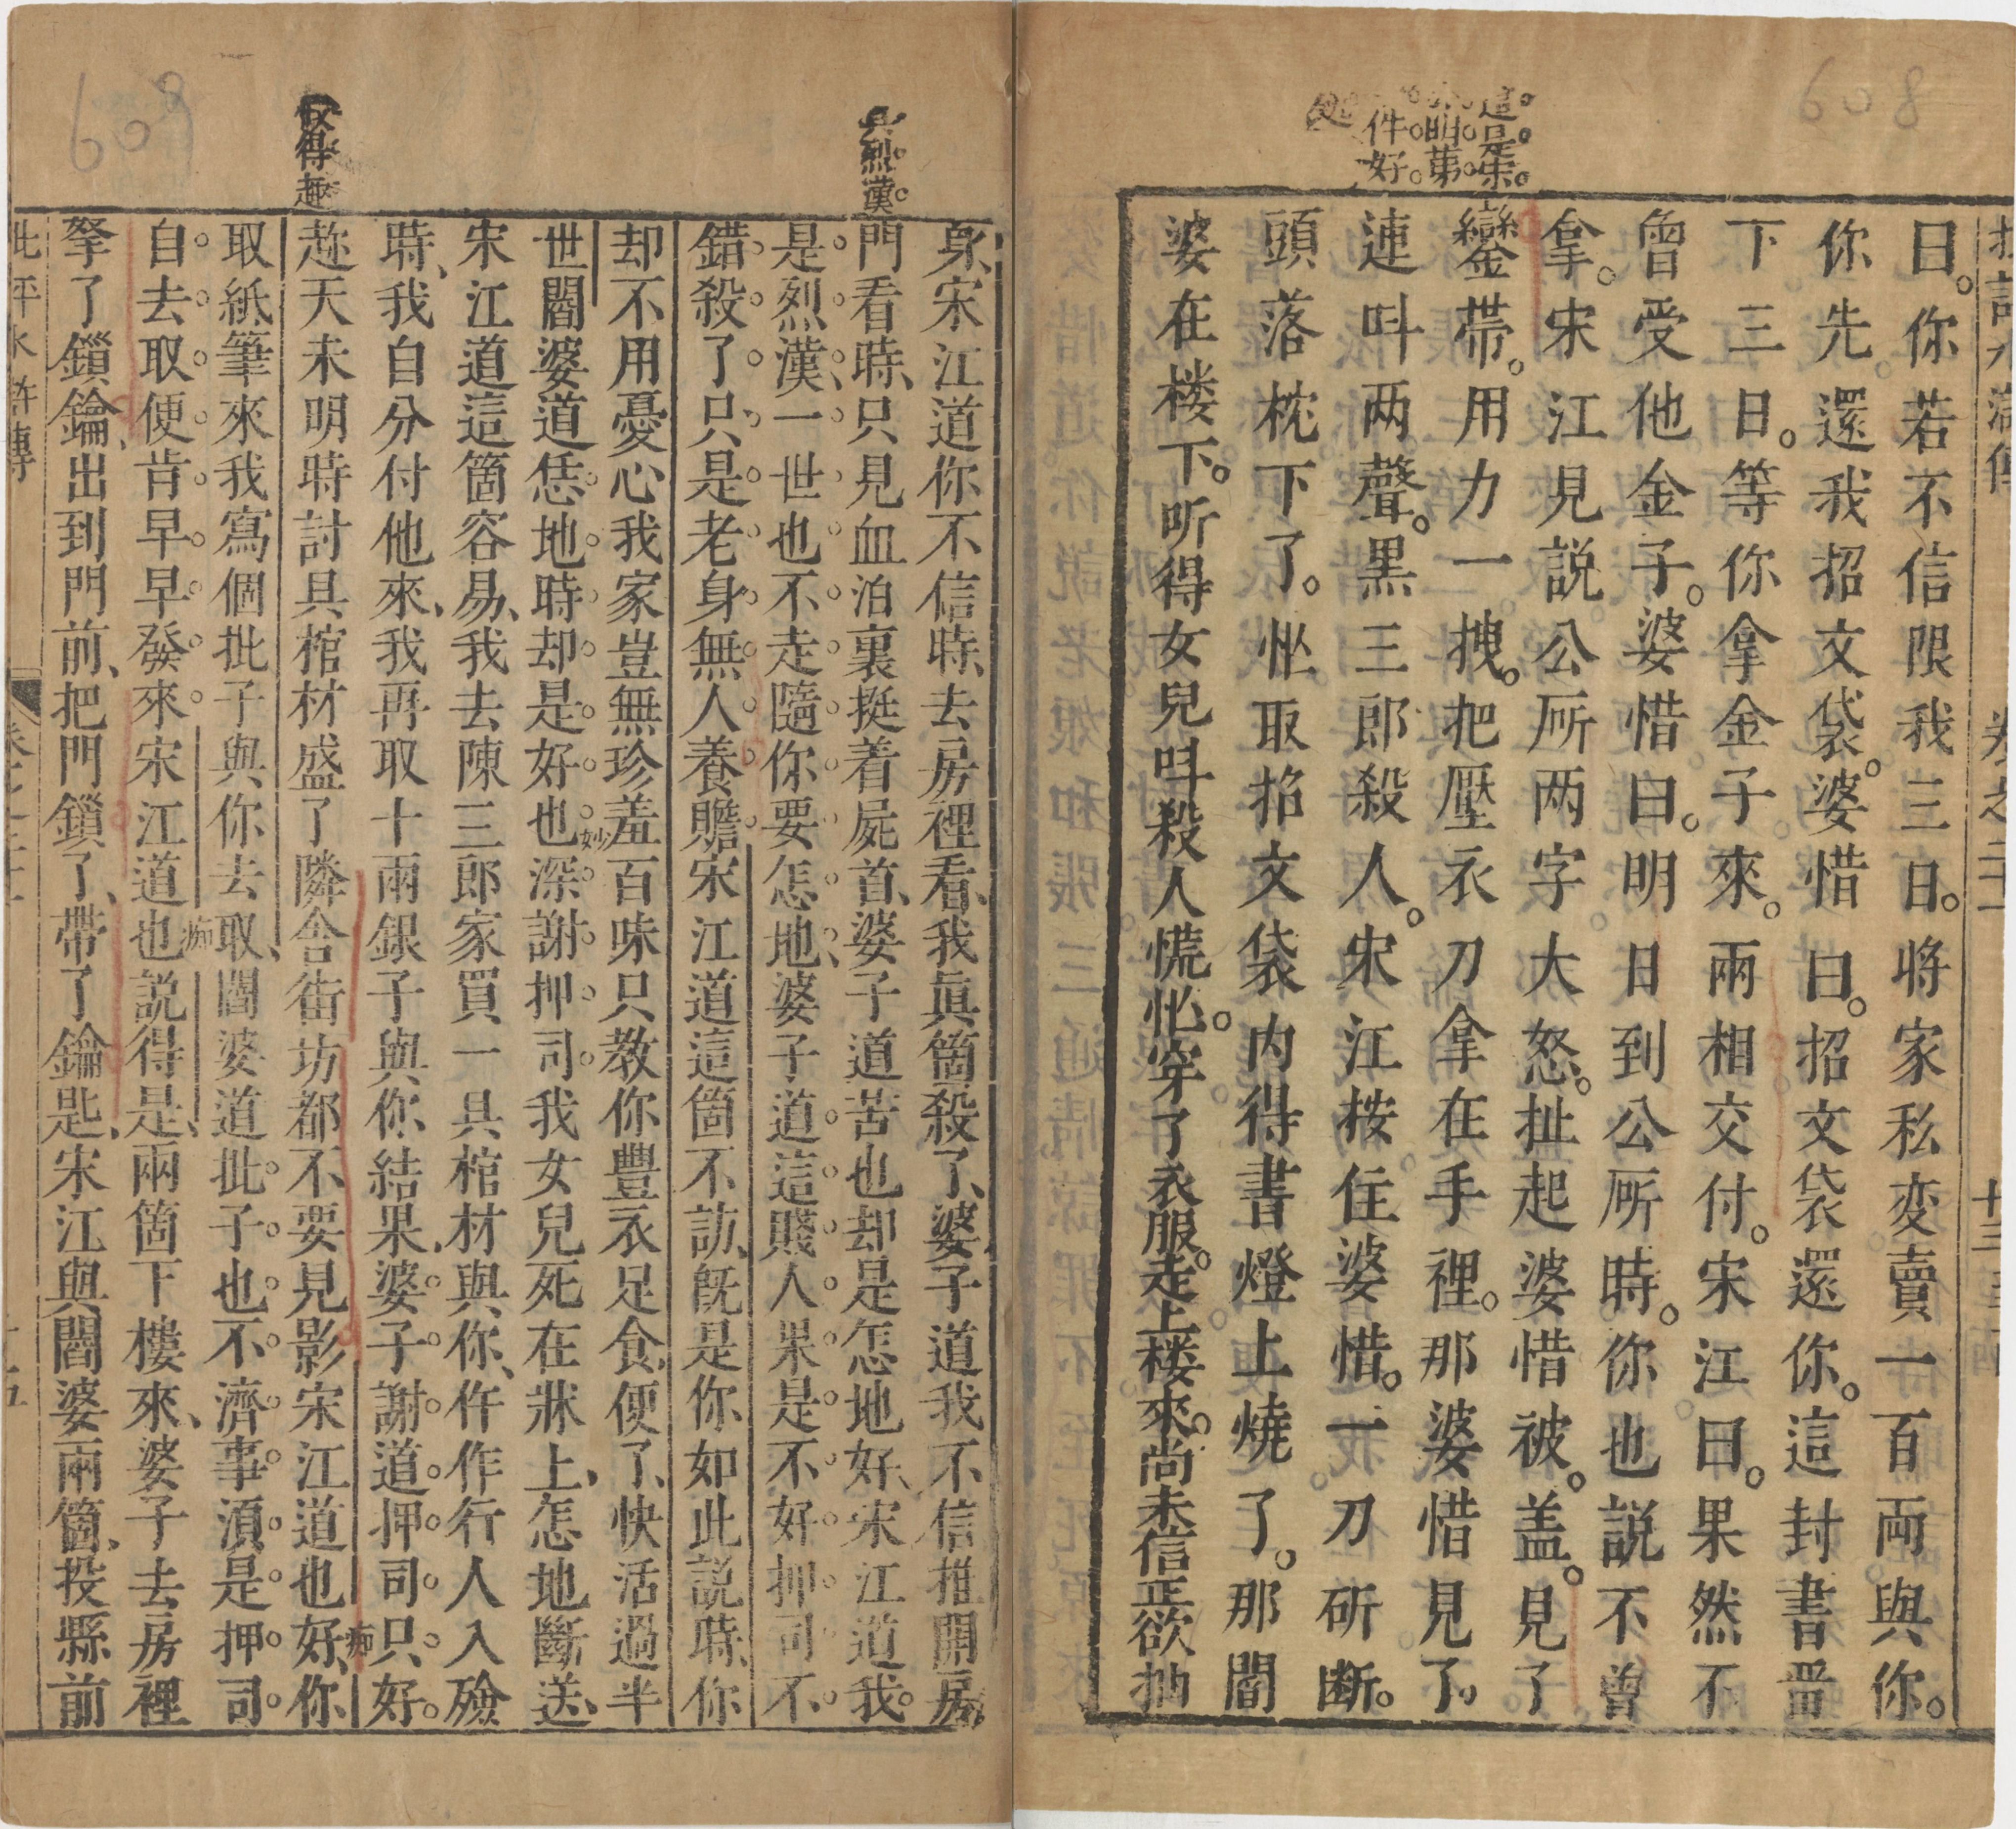 608
這是宋
明第
件好
處
卷之二十一
十三
曰你若不信限我三日將家私变賣一百両與你
你先還我招文袋婆惜曰招文袋還你這封書畱
下三日等你拿金子來兩相交付宋江曰果然不
曾受他金子婆惜曰明日到公所時你也説不曾
拿宋江見説公所两字大怒扯起婆惜被盖見了
鑾帶用力一拽把壓衣刀拿在手裡那婆惜見了
連呌两聲黑三郎殺人宋江按住婆惜一刀斫断
頭落枕下了坐取招文袋内得書燈上燒了那閻
婆在楼下听得女兒呌殺人慌忙穿了衣服走上楼來尚未信正欲抽
609
烈漢
叙得趣
身宋江道你不信時去房裡看我眞箇殺了婆子道我不信推開房
門看時只見血泊裏挺着屍首婆子道苦也却是怎地好宋江道我
是烈漢一世也不走隨你要怎地婆子道這賤人果是不好押司不
錯殺了只是老身無人養贍宋江道這箇不訪既是你如此説時你
却不用憂心我家豈無珍羞百味只教你豐衣足食便了快活過半
世閻婆道恁地時却是好也妙深謝押司我女兒死在牀上怎地斷送
宋江道這箇容易我去陳三郎家買一具棺材與你仵作行人入殮
時我自分付他來我再取十兩銀子與你結果婆子謝道押司只好
趂天未明時討具棺材盛了隣舍街坊都不要見影宋江道也好你
痴
取紙筆來我寫個批子與你去取閻婆道批子也不濟事須是押司
自去取便肯早早發來宋江道也説得是兩箇下樓來婆子去房裡
痴
拏了鎖鑰出到門前把門鎖了帶了鑰匙宋江與閻婆兩箇投縣前
批評水滸傳